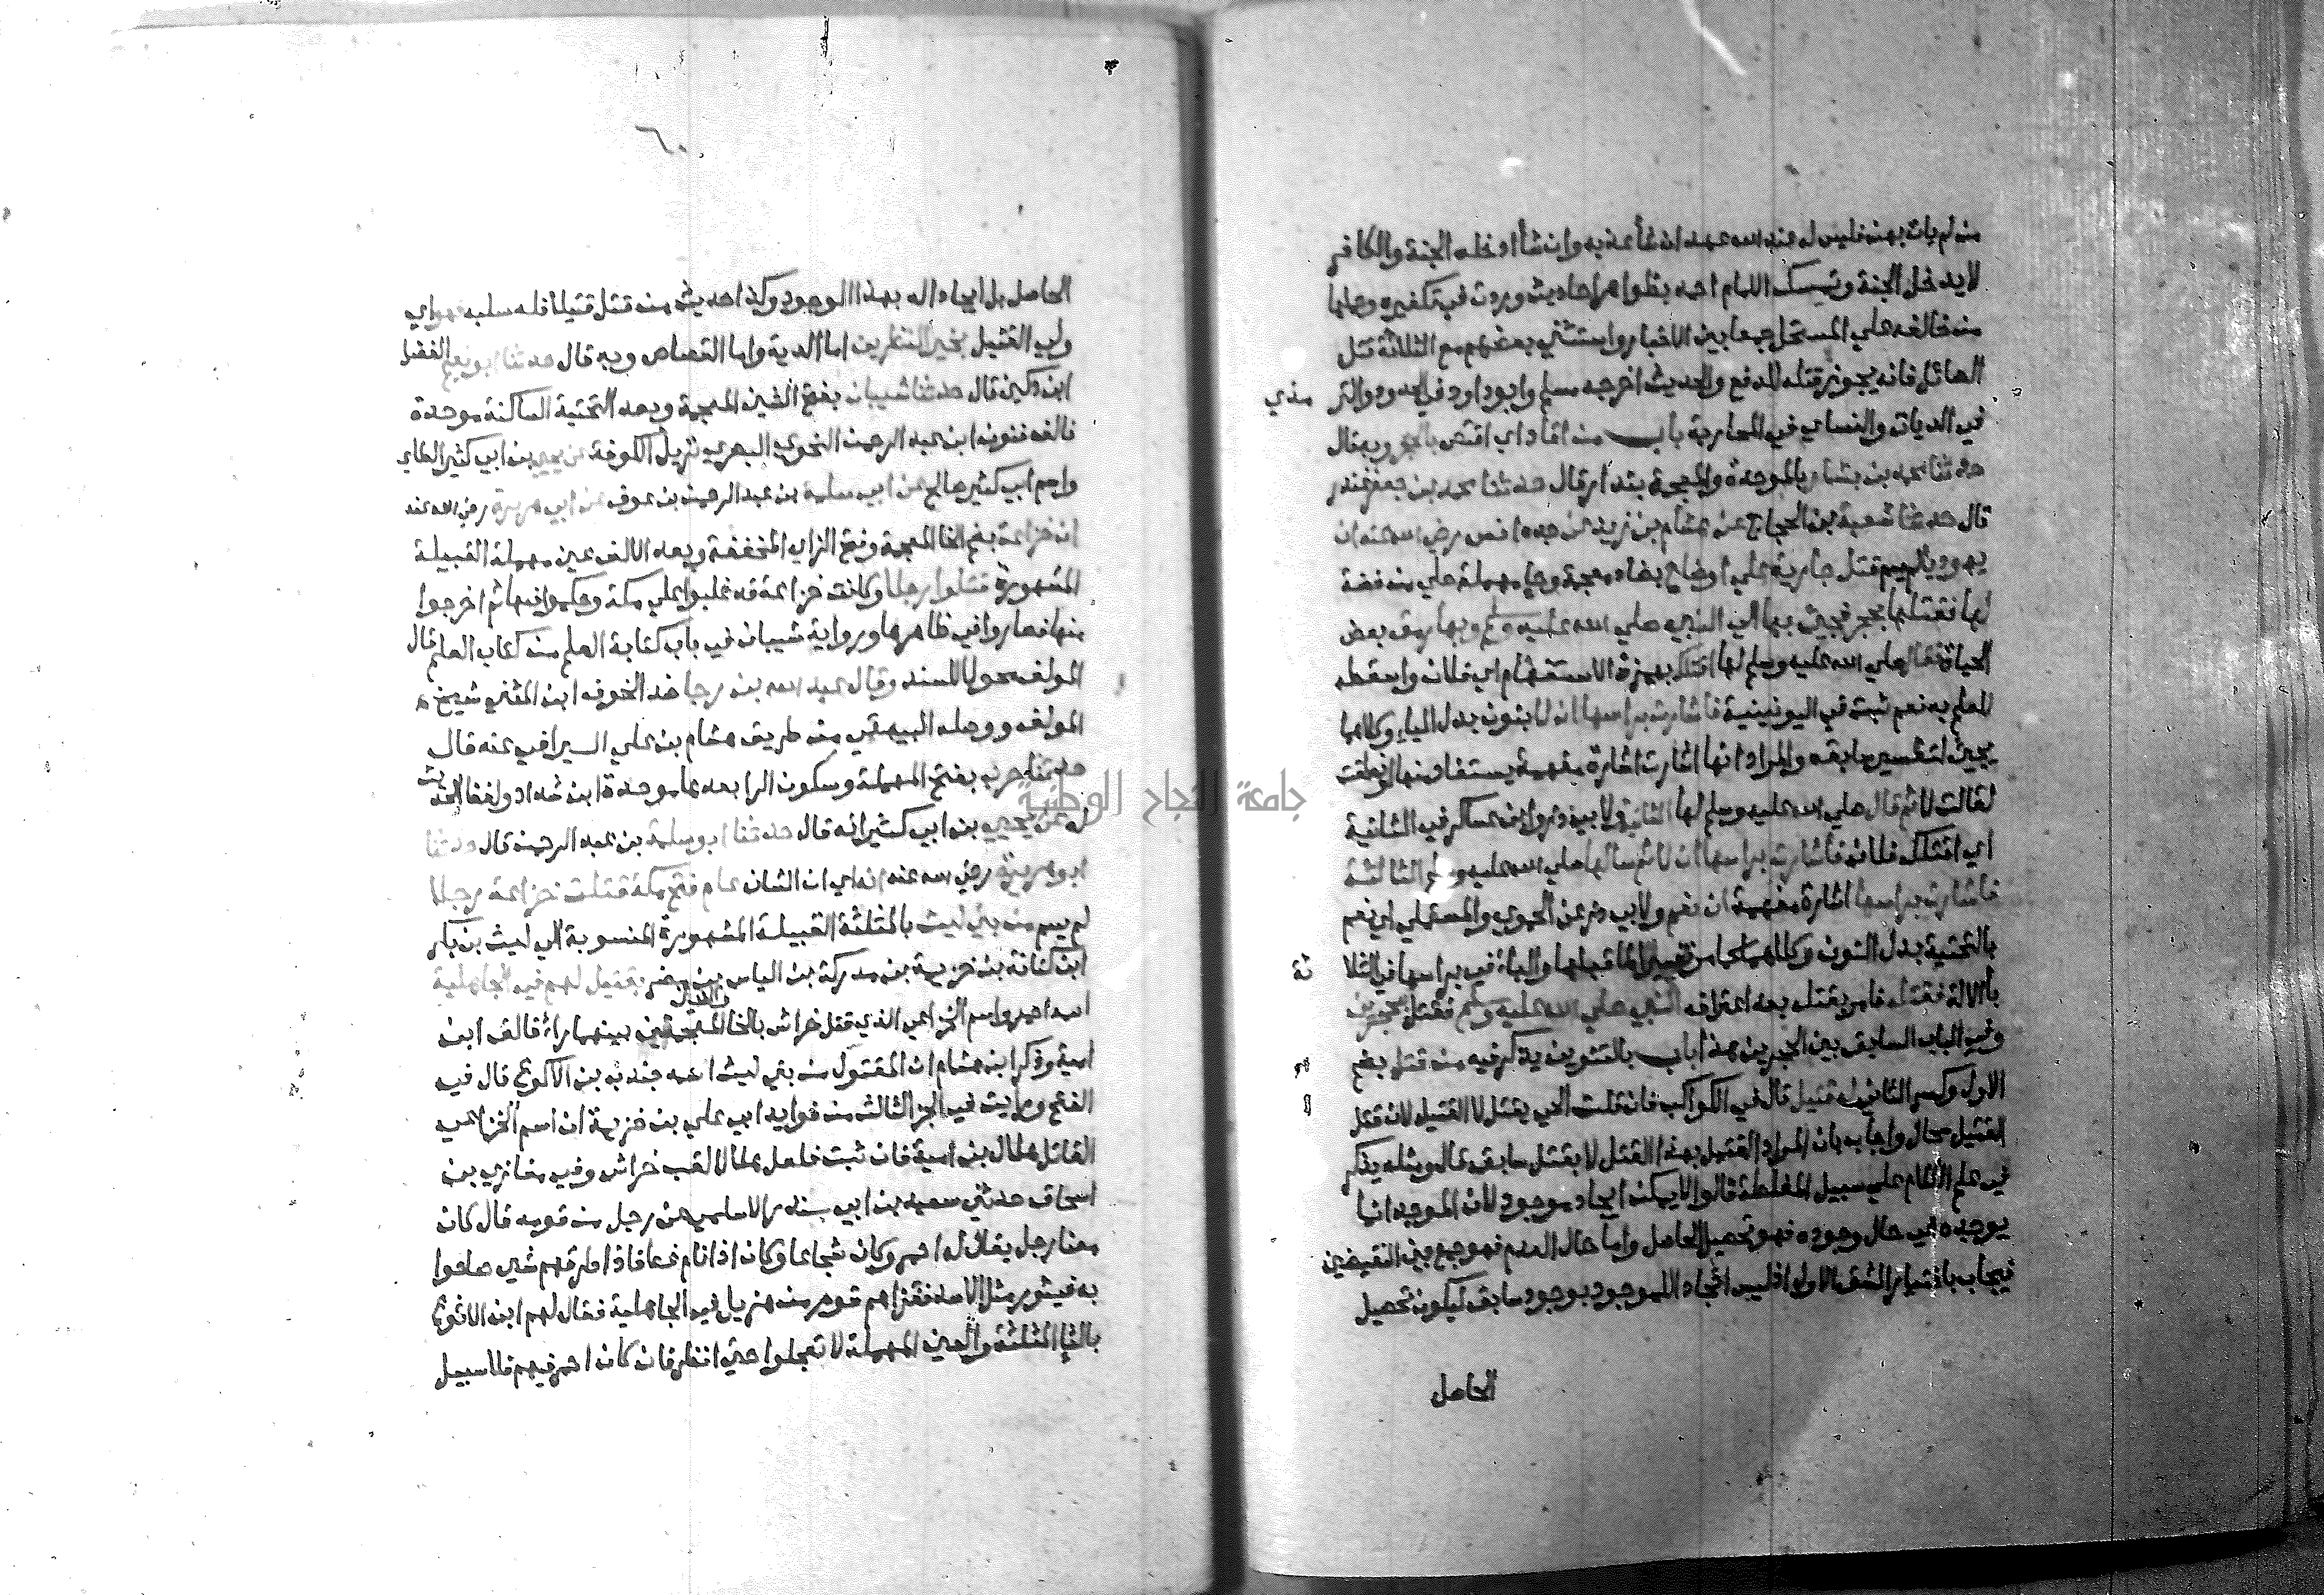 من لم يات بهن فليس له عند الله عهد ان شأ عذبه وان شأ ادخله الجنة والكافر
لا يدخل الجنة وتمسك الامام احمد بظواهر احاديث وردت في تكفيره وحملها
من خالفه علي المستحل جمعا بين الاخبار واستثني بعضهم مع الثلاثة قتل
الصائل فانه يجوز قتله للدفع والحديث اخرجه مسلم وابو داود في الحدود والتر مذي
في الديات والنساي في المحاربة باب من اقاد اي اقتص بالحجر وبه قال
حدثنا محمد بن بشار بالموحدة والمعجمة بندار قال حدثنا محمد بن جعفر غندر
قال حدثنا شعبة بن الحجاج عن هشام بن زيد عن جده انس رضي الله عنه ان
يهوديا لم يسم قتل جارية علي اوضاح بضاد معجمة وحا مهملة حلي من فضة
لها فقتلها بحجر فجيئ بها الي النبي صلي الله عليه وسلم وبها رمق بعض
الحياة فقال صلي الله عليه وسلم لها اقتلك بهمزة الاستفهام اي فلان واسقطه
للعلم به نعم ثبت في اليونينية فاشارت براسها ان لا بنون بدل الياء وكلاهما
يجيئ لتفسير ما بعده والمراد انها اشارت اشارة مفهمة يستفاد منها لو نطقت
لقالت لا ثم قال صلي الله عليه وسلم لها الثانية ولابي ذر وابن عساكر في الثانية
اي اقتلك فلان فأشارت براسها ان لا ثم سالها صلي الله عليه وسلم الثالثة
فاشارت براسها اشارة مفهمة ان نعم ولابي ذر عن الحموي والمستملي اي نعم
بالتحتية بدل النون وكلاهما تفسير لما قبلها والباء في براسها في الثلا ثة
بالالة فقتله فامر بقتله بعد اعترافه النبي صلي الله عليه وسلم فقتل بحجرين
وفي الباب السابق بين الحجرين هذا باب بالتنوين يذكر فيه من قتل بضم
الاول وكسر الثاني له قتيل قال في الكواكب فان قلت الحي يقتل لا القتيل لان قتل
القتيل محال واجاب بان المراد القتيل بهذا القتل لا بقتل سابق قال ومثله يذكر
في علم الكلام علي سبيل المغلطة قالوا لا يمكن ايجاد موجود لان الموجد اما
يوجده في حال وجوده فهو تحصيل الحاصل واما حال العدم فهو جمع بين النقيضين
فيجاب باختيار الشق الاول اذ ليس ايجاد الموجود بوجود سابق ليكون تحصيل
الحاصل
٦٠
الحاصل بل ايجاد له بهذا الوجود وكذا حديث من قتل قتيلا فله سلبه فهو اي
ولي القتيل بخير النظرين اما الدية واما القصاص وبه قال حدثنا ابو نعيم الفضل
ابن دكين قال حدثنا شيبان بفتح الشين المعجمة وبعد التحتية الساكنة موحدة
فالف فنون ابن عبد الرحمن النحوي البصري نزيل الكوفة عن يحيي بن ابي كثير الطاي
واسم ابي كثير صالح عن ابي سلمة بن عبد الرحمن بن عوف عن ابي هريرة رضي الله عنه
ان خزاعة بضم الخا المعجمة وفتح الزاي المخففة وبعد الالف عين مهملة القبيلة
المشهورة قتلوا رجلا وكانت خزاعة قد غلبوا علي مكة وحكموا فيها ثم اخرجوا
منها فصاروا في ظاهرها ورواية شيبان في باب كتابة العلم من كتاب العلم قال
المولف محولا للسند وقال عبد الله بن رجا ضد الخوف ابن المثني شيخ
المولف ووصله البيهقي من طريق هشام بن علي السيرافي عنه قال
حدثنا حرب بفتح المهملة وسكون الرا بعدها موحدة ابن شداد ولفظ الحديث
له عن يحيي بن ابي كثير انه قال حدثنا ابو سلمة بن عبد الرحمن قال حدثنا
ابو هريرة رضي الله عنه انه اي ان الشان عام فتح مكة قتلت خزاعة رجلا
لم يسم من بني ليث بالمثلثة القبيلة المشهورة المنسوبة الي ليث بن بكر
ابن كنانة بن خزيمة بن مدركة بن الياس بن مضر بقتيل لهم في الجاهلية
اسمه احمر واسم الخزاعي الذي قتل خراش بالخا والشين المعجمتين بينهما راء فالف ابن
امية وذكر ابن هشام ان المقتول من بني ليث اسمه جندب بن الاكوع قال في
الفتح ورايت في الجز الثالث من فوايد ابي علي بن خزيمة ان اسم الخزاعي
القاتل هلال بن امية فان ثبت فلعل هلالا لقب خراش وفي مغازي بن
اسحاق حدثني سعيد بن ابي سندر الاسلمي عن رجل من قومه قال كان
معنا رجل يقال له احمر وكان شجاعا وكان اذا نام غط فاذا طرقهم شي صاحوا
به فيثور مثل الاسد فغزاهم قوم من هزيل في الجاهلية فقال لهم ابن الاثوع
بالثا المثلثة والعين المهملة لا تعجلوا حتي انظر فان كان احمر فيهم فلا سبيل
جامعة النجاح الوطنية